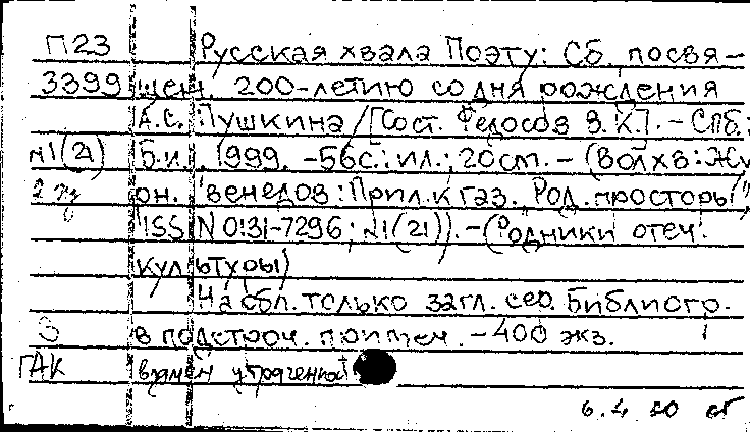 П23 Русская хвала Поэту: Сб. посвя-
3399 щен. 200-летию со дня рождения
А.С. Пушкина / [Сост. Федосов В.К.]. - СПб.:
N1(21) Б.и., 1999. - 56с.: ил.; 20см. - (Волхв: Жу
2 экз он. "венедов: Прил. к газ. Род. просторы",
ISSN 0131-7296; N1(21)). - (Родники отеч.
культуры)
На обл. только загл. сер. Библиогр.
З в подстроч. примеч. - 400 экз.
ГАК взамен утраченной